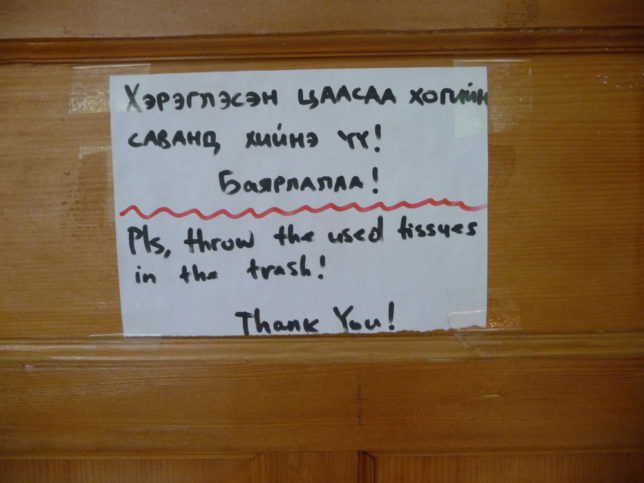 Хэрэглэсэн цаасаа хогийн
саванд хийнэ үү!
Баярлалаа!
Pls, throw the used tissues
in the trash!
Thank You!